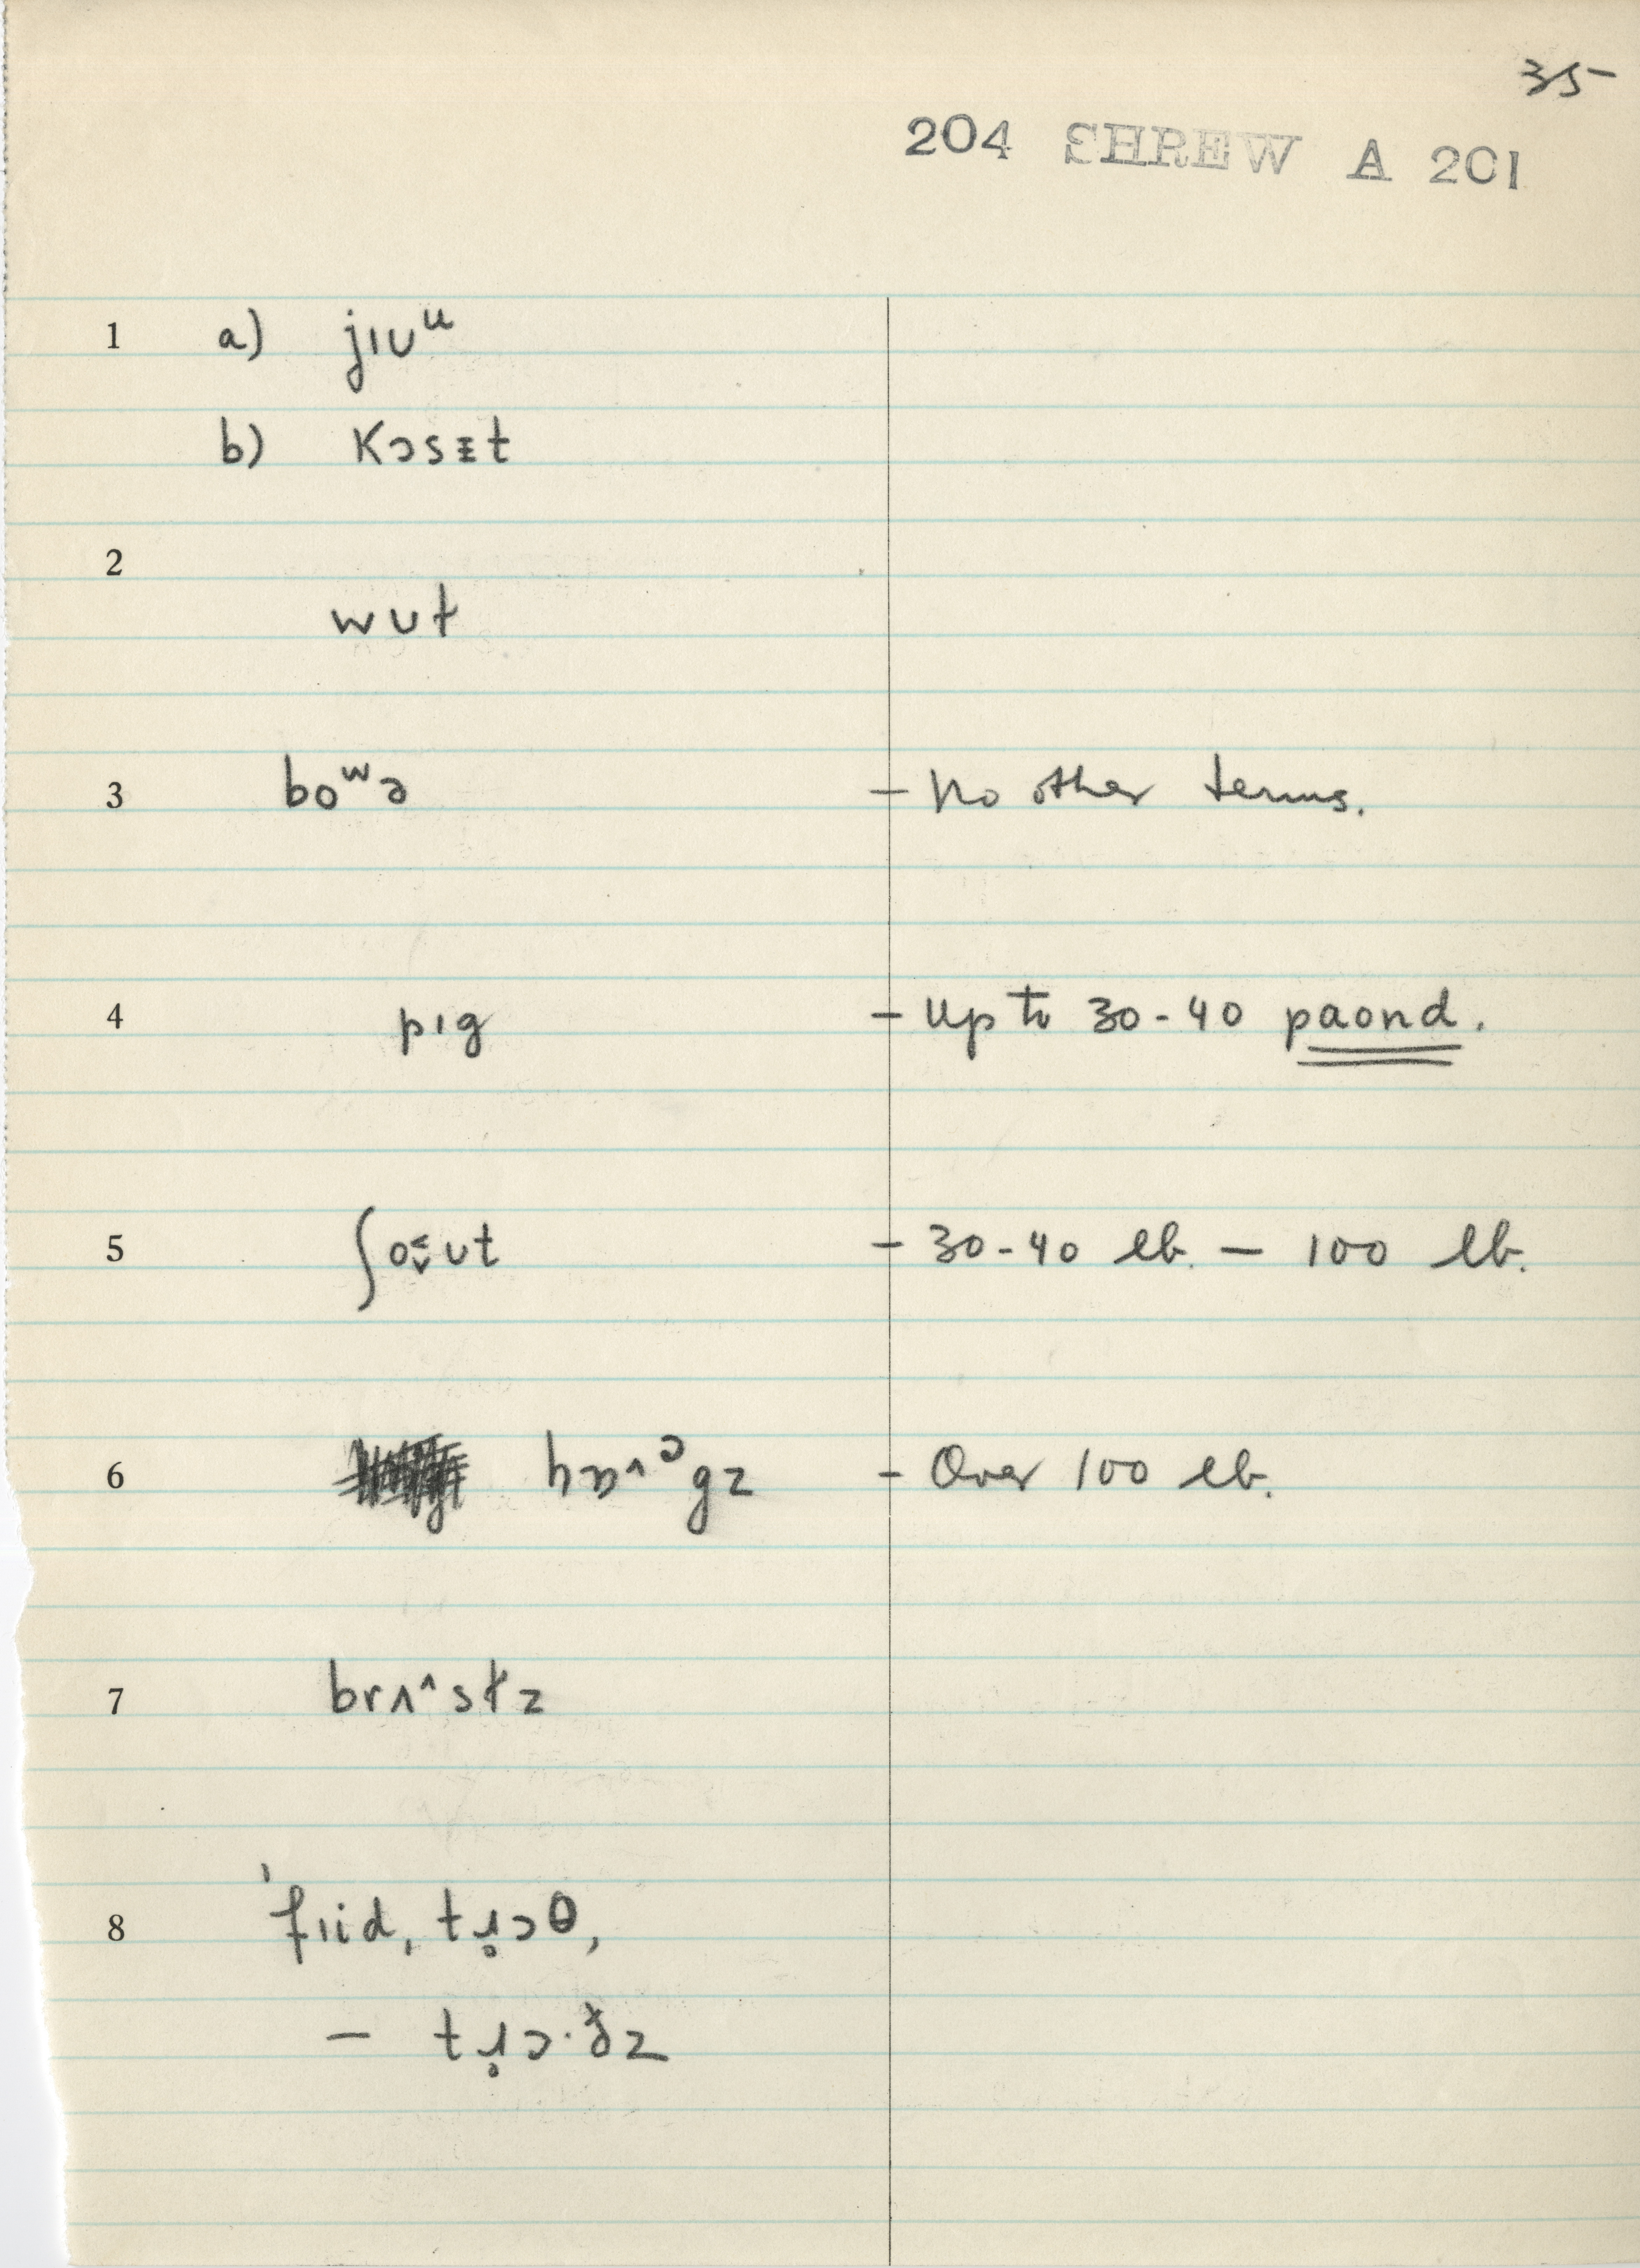 35
204 SHREW A 201
1 a) jɪᴜᵘ
b) kɔsᵻt
2
wʊt
3 boʷə - No other terms.
4 pɪg - Up to 30-40 paond.
5 ʃo̬˂ʊt - 30-40 lb. - 100 lb.
6 - Over 100 lb.
7 brʌ˄st̬z
8 'fɪid, tɹ̥ɔθ,
- tɹ̥ɔ·ð̬z